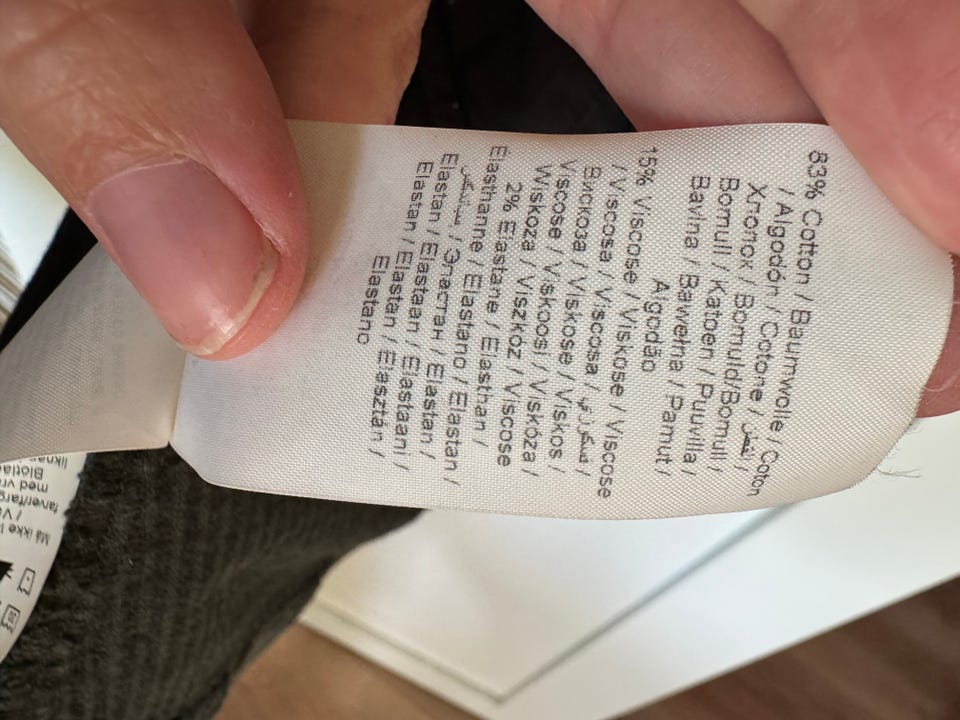 83% Cotton / Baumwolle / Coton
/ Algodón / Cotone / القطن /
Хлопок / Bomuld/Bomull /
Bomull / Katoen / Puuvilla /
Bavlna / Bawełna / Pamut /
Algodão
15% Viscose / Viskose / Viscose
/ Viscosa / Viscosa / /
Вискоза / Viskose / Viskos /
Viscose / Viskoosi / Viskóza /
Wiskoza / Viszkóz / Viscose
2% Elastane / Elasthan /
Élasthanne / Elastano / Elastan /
/ Эластан / Elastan /
Elastan / Elastaan / Elastaani /
Elastan / Elastan / Elasztán /
Elastano
Må ikke
med